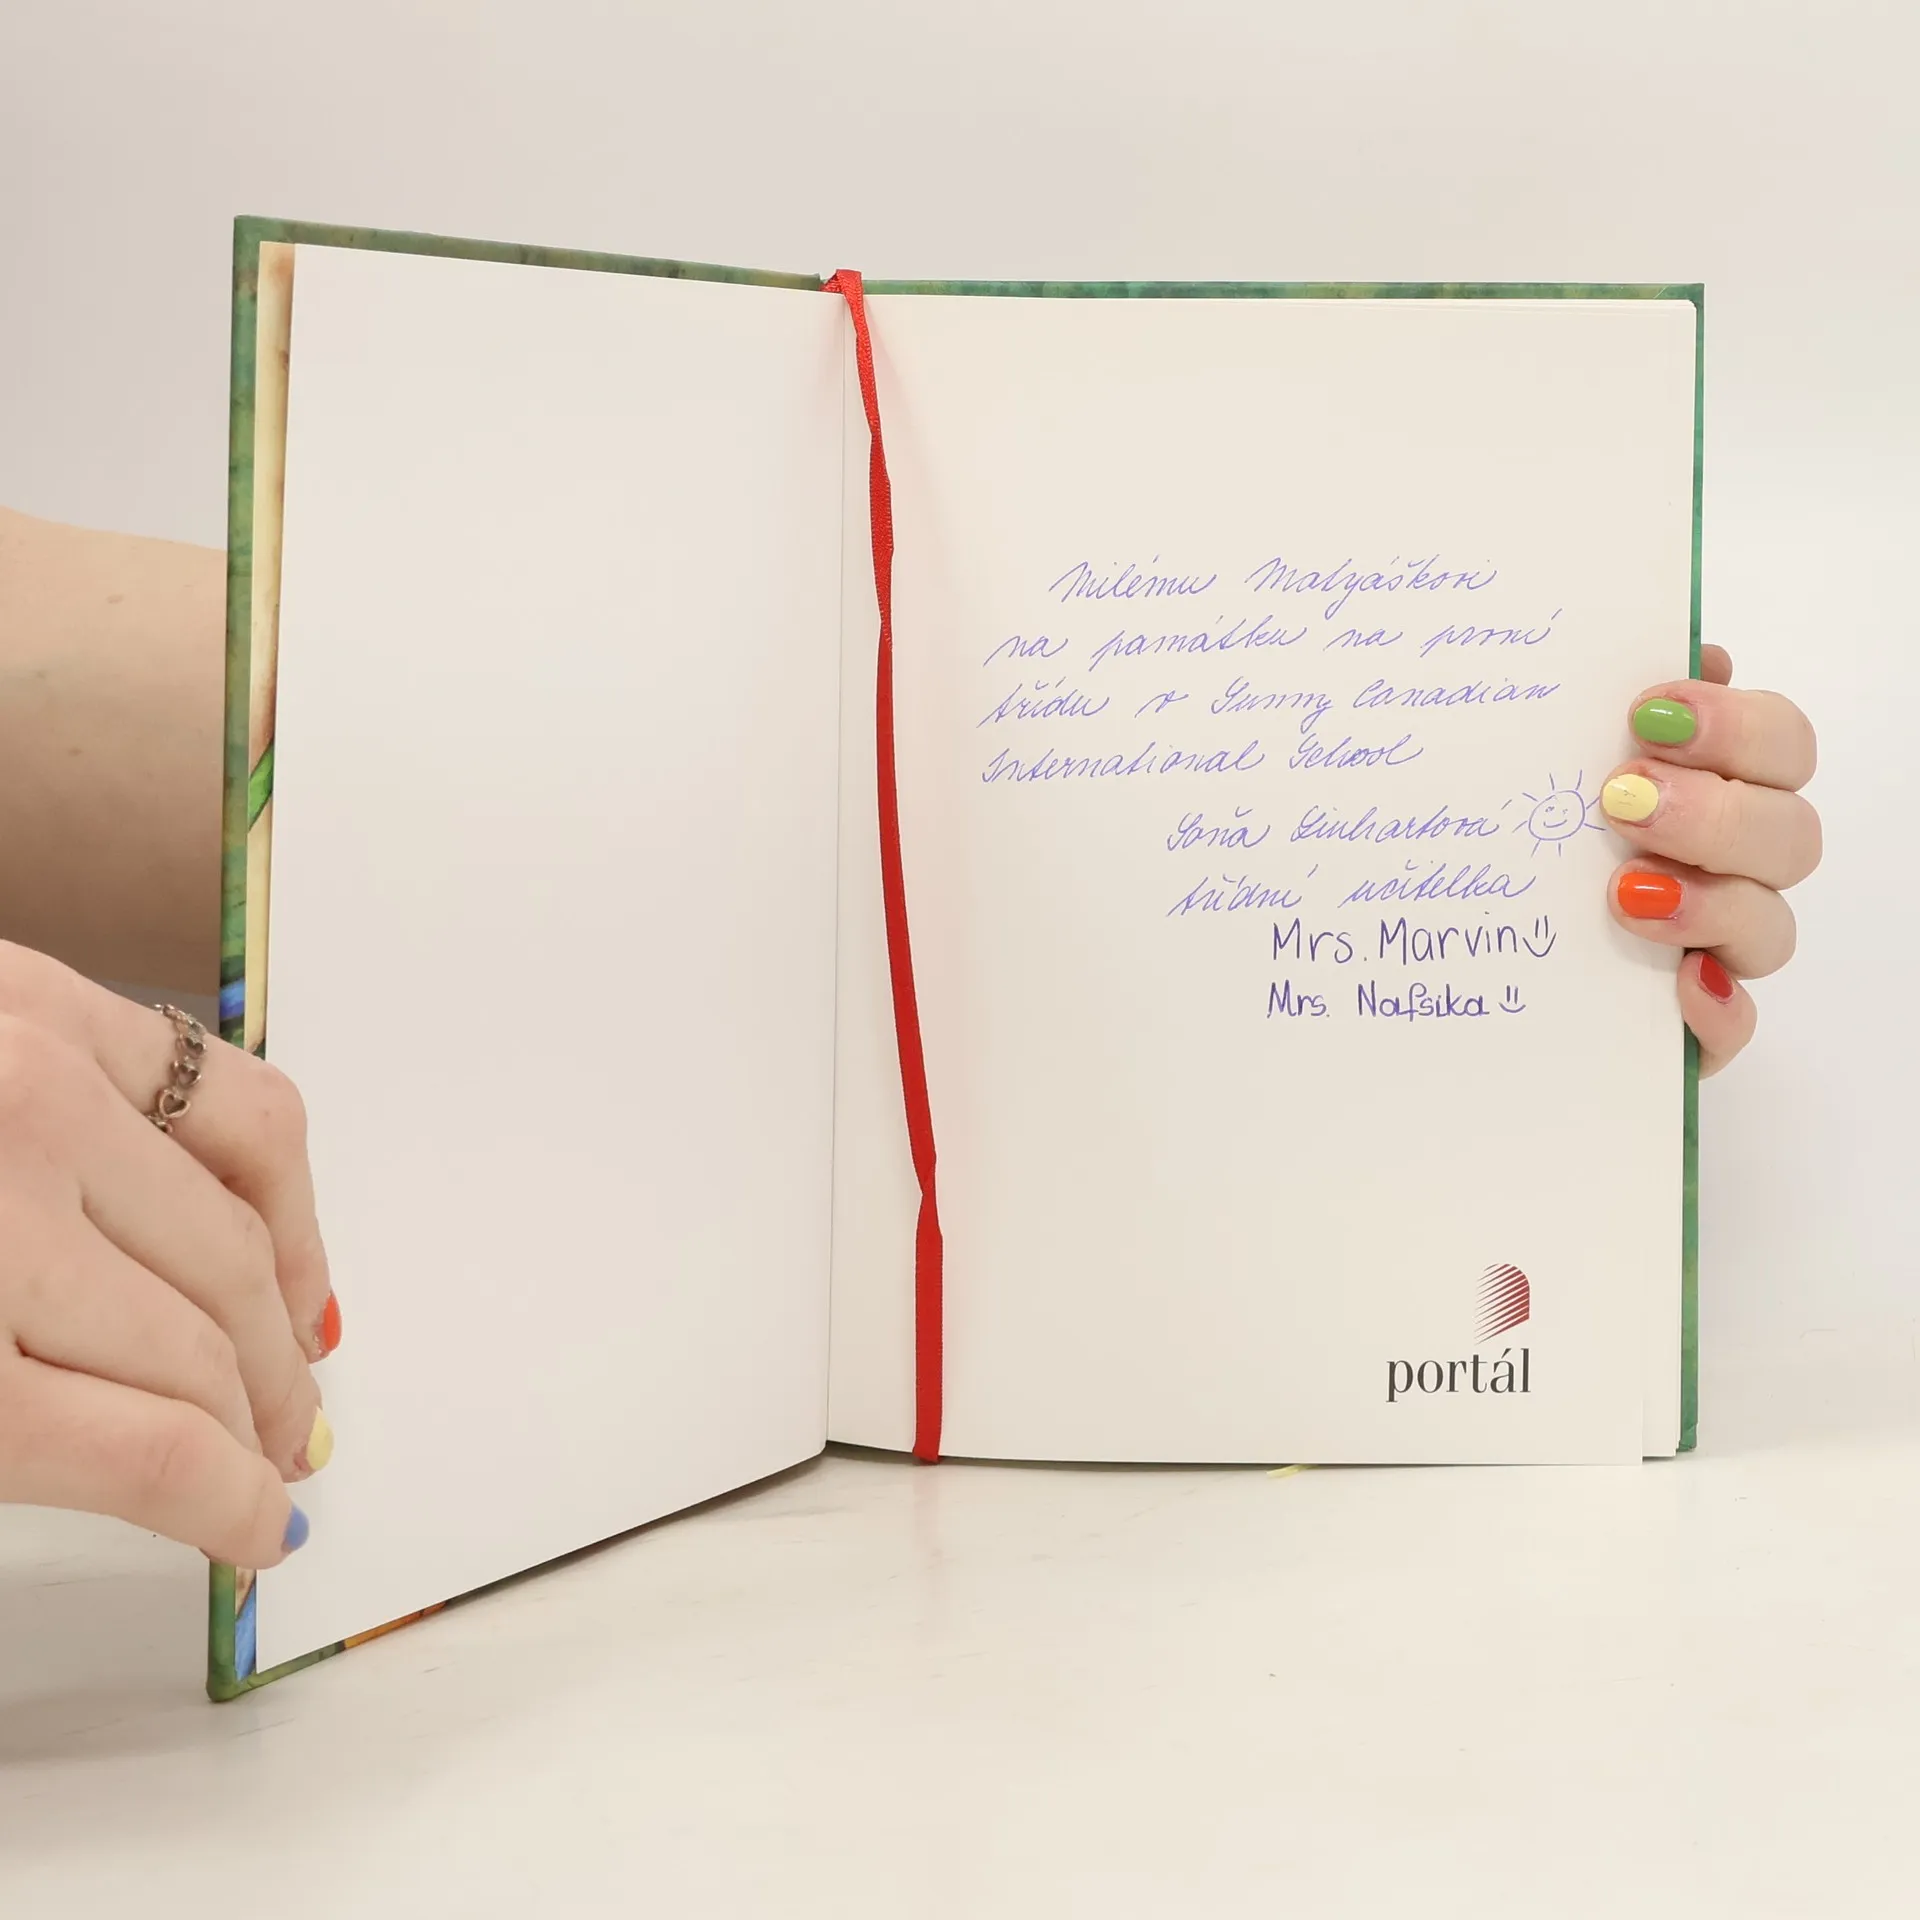 Milému Matyáškovi
na památku na první
třídu v Sunny Canadian
International School
Soňa Linhartová
třídní učitelka
Mrs. Marvin
Mrs. Nafsika
portál